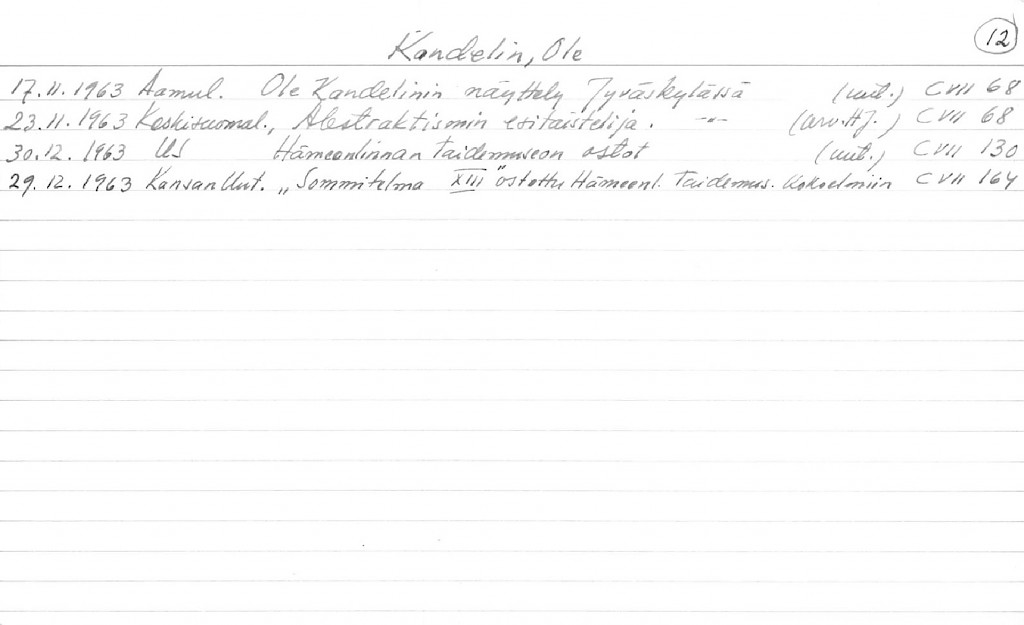 12
Kandelin, Ole
17.11.1963 Aamul. Ole Kandelinin näyttely Jyväskylässä (uut.) CVII 68
23.11.1963 Keskisuomal., Abstraktismin esitaistelija. -"- (arv. HJ.) CVII 68
30.12.1963 US Hämeenlinnan Taidemuseon ostot (uut.) CVII 130
29.12.1963 Kansan Uut. „Sommitelma XIII" ostettu Hämeenl. Taidemus. kokoelmiin CVII 164